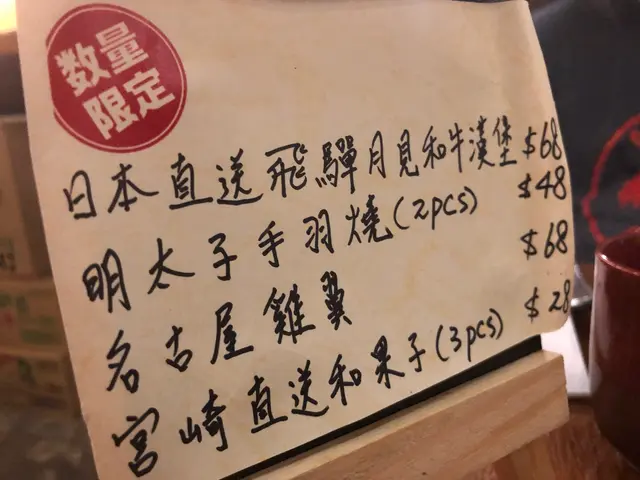 数量
限定
日本直送飛驒月見和牛漢堡 $68
明太子手羽燒(2pcs) $48
名古屋雞翼 $68
宮崎直送和果子(3pcs) $28